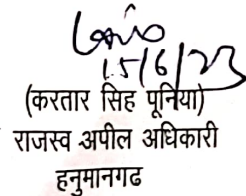 15/6/23
(करतार सिंह पूनिया)
राजस्व अपील अधिकारी
हनुमानगढ